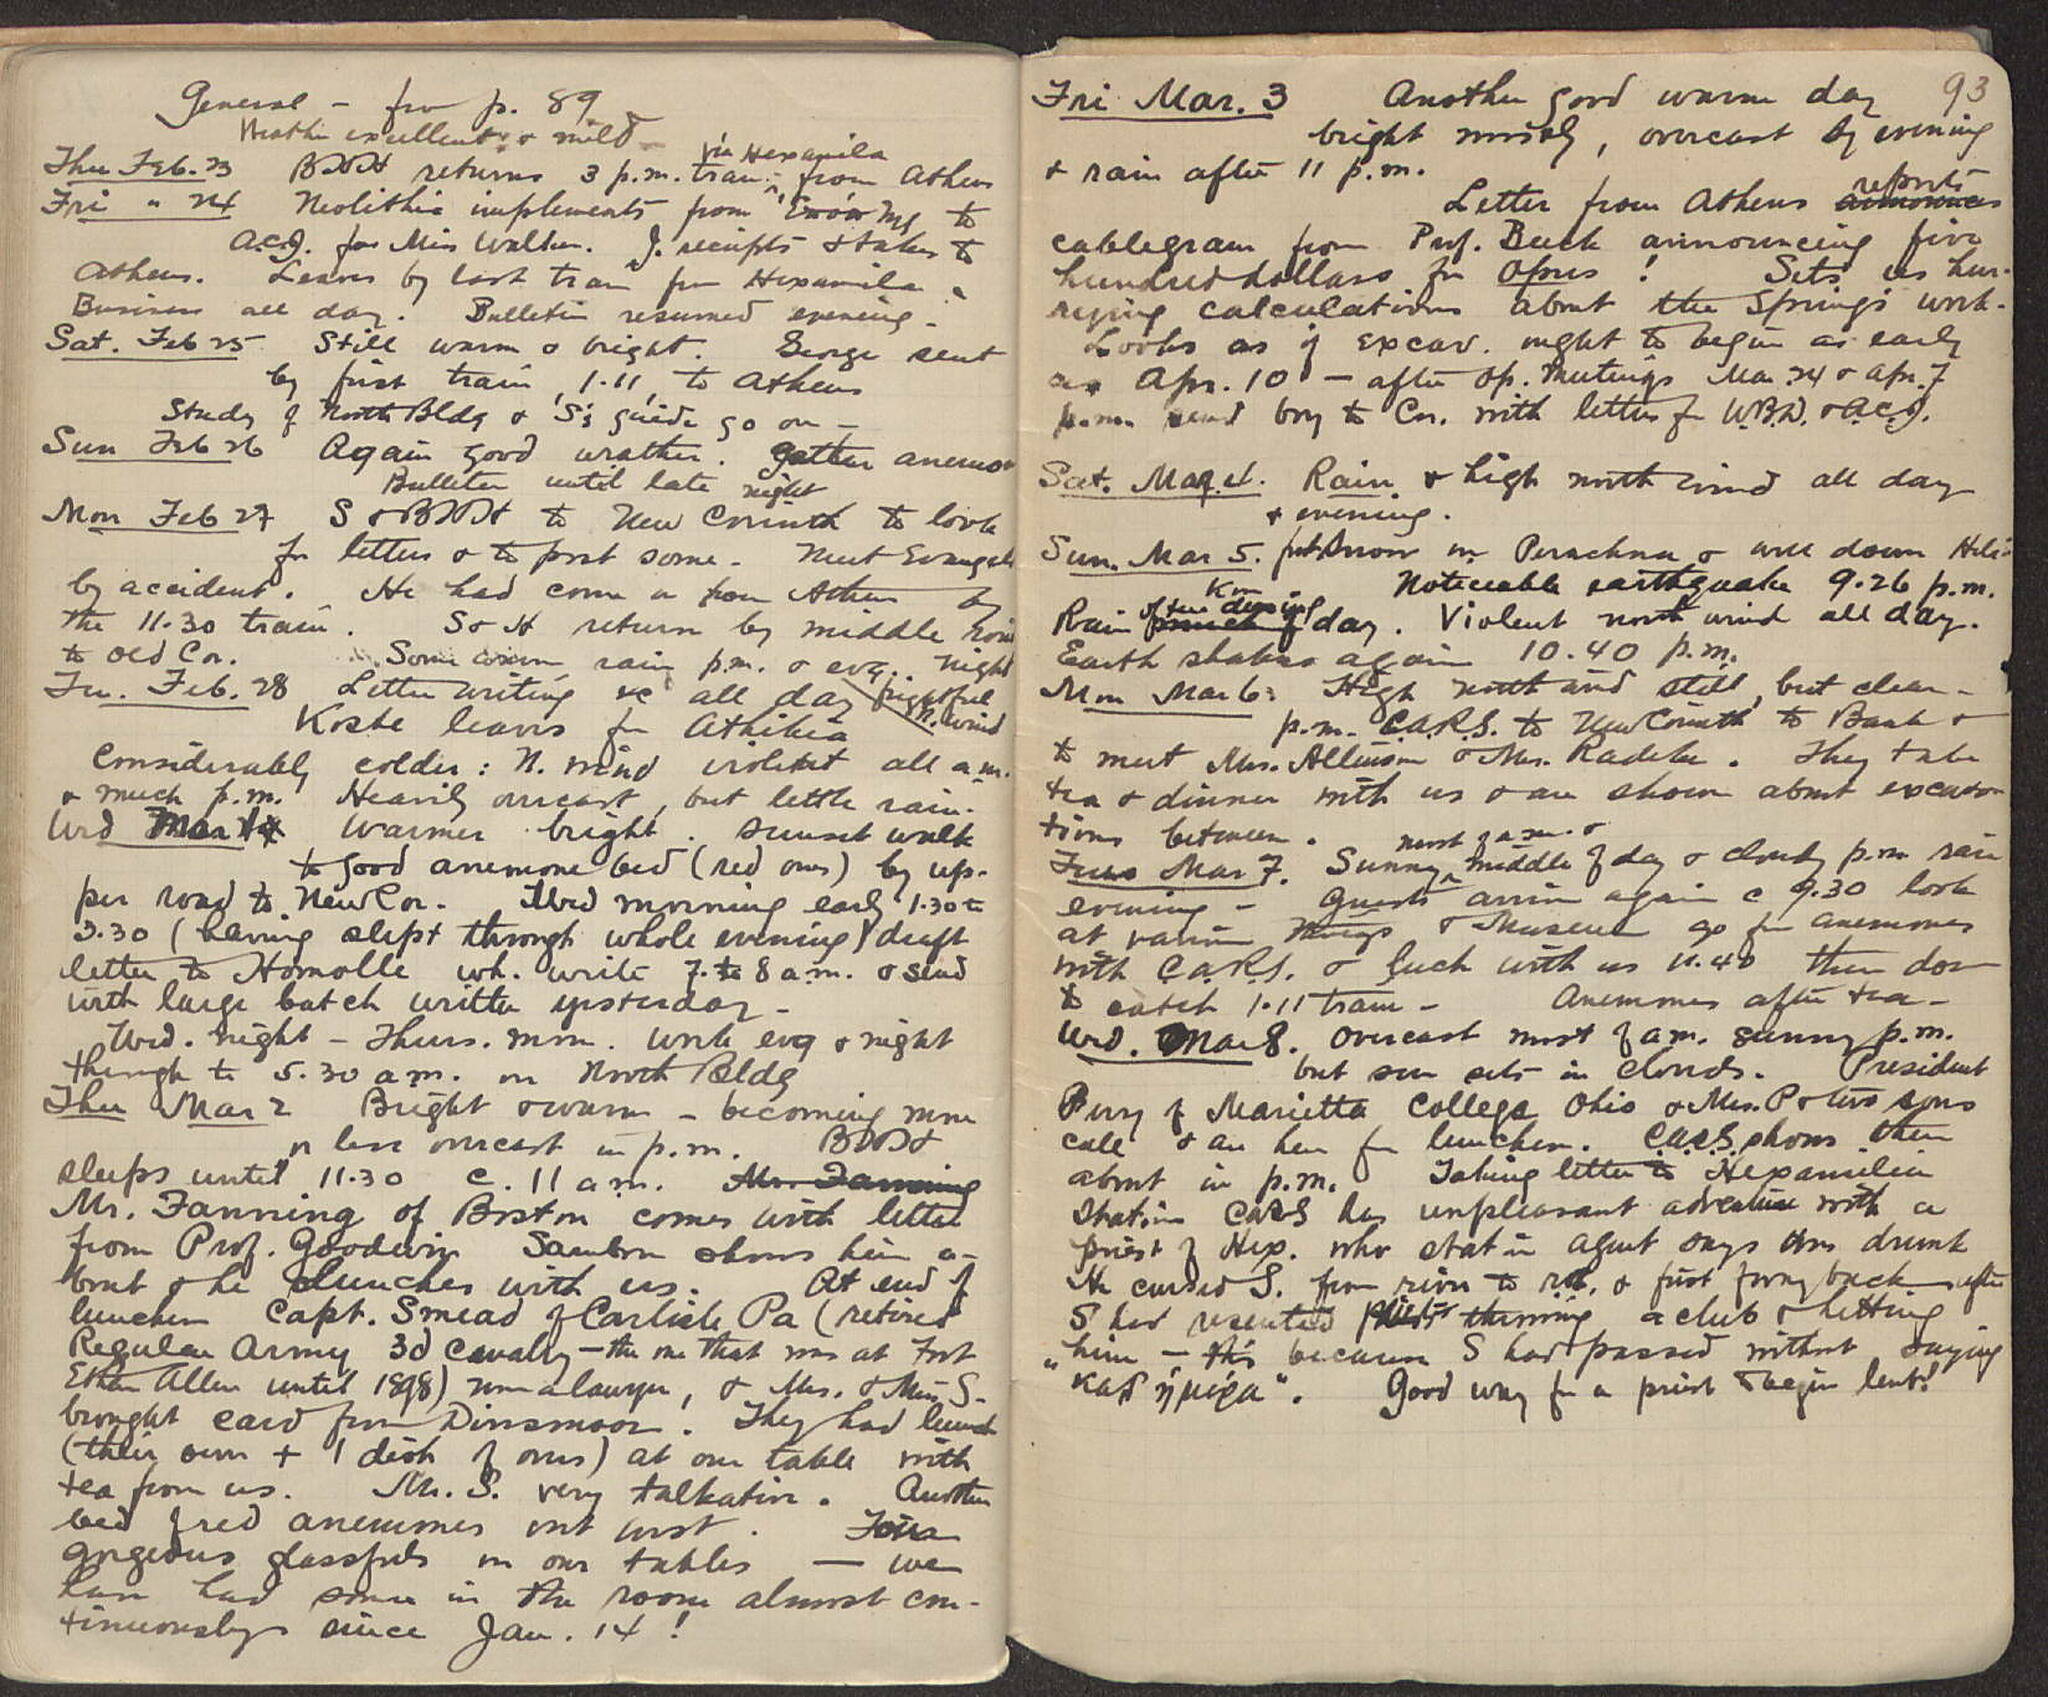 General – from p. 89
Weather excellent & mild
via Hexamila
Thu Feb. 23 BHH returns 3 p.m. train from Athens
Fri " 24 Neolithic implements from to
A.C.J. for Miss Walker. J. receipts & takes to
Athens. Leaves by last train from Hexamila.
Business all day. Bulletin resumed evening.
Sat. Feb 25 Still warm & bright. George sent
by first train, 1.11, to Athens
Study of North Bldg & S's guide go on –
Sun Feb 26 Again good weather. Gather anemo
Bulletin until late night
Mon Feb 27 S & BHH to New Corinth to look
for letters & to post some. Meet Evangel
by accident. He had come from Athens by
the 11.30 train. S & H return by middle road
to Old Cor. Some warm rain p.m. & evg. Night
Tu. Feb. 28 Letter writing &c all day frightful
N. wind
Koste leaves for Athikia
Considerably colder: N. wind violent all a.m.
& much p.m. Heavily overcast, but little rain.
Wed Mar 1 Warmer bright. Sunset walk
to good anemone bed (red ones) by up-
per road to New Cor. Wed morning early 1.30 to
3.30 (having slept through whole evening) draft
letter to Homolle wh. write 7. to 8 a.m. & send
with large batch written yesterday –
Wed. night – Thurs. morn. work evg & night
through to 5.30 a.m. on North Bldg
Thu Mar 2 Bright & warm – becoming more
or less overcast in p.m. BHH
sleeps until 11.30 c. 11 a.m. Mr. Fanning
Mr. Fanning of Boston comes with letter
from Prof. Goodwin Sanborn shows him a-
bout & he lunches with us. At end of
luncheon Capt. Smead of Carlisle Pa (retired
Regular Army 3d Cavalry – the one that was at Fort
Ethan Allen until 1898) now a lawyer, & Mrs. & Miss S.
brought card from Dinsmoor. They had lunch
(their own + 1 dish of ours) at our table with
tea from us. Mr. S. very talkative. Another
bed of red anemones out west. Four
gorgeous glassfuls on our tables – we
have had some in the room almost con-
tinuously since Jan. 14!
93
Fri Mar. 3 Another good warm day
bright mostly, overcast by evening
& rain after 11 p.m.
reports
Letter from Athens announces
cablegram from Prof. Buck announcing five
hundred dollars for Opus! Sets us hur-
rying calculations about the Springs work.
Looks as if excav. ought to begin as early
as Apr. 10 – after Op. Meetings Mar. 24 & Apr. 7
p.m. send boy to Cor. with letters for W.B.D. & A.C.J.
Sat. Mar. 4. Rain & high north wind all day
& evening.
Sun. Mar 5. fresh snow on Perachora & well down Heli-
kon Noticeable earthquake 9.26 p.m.
often during
Rain much of day. Violent north wind all day.
Earth shakes again 10.40 p.m.
Mon Mar 6: High north wind still, but clear –
p.m. C.A.R.S. to New Corinth to Bank &
to meet Mrs. Allinson & Mrs. Radeke. They take
tea & dinner with us & are shown about excava-
tions between.
most of a.m. &
Tues Mar 7. Sunny middle of day & cloudy p.m. rain
evening – Guests arrive again c 9.30 look
at various things & Museum go for anemones
with C.A.R.S. & lunch with us 11.40 then down
to catch 1.11 train – Anemones after tea –
Wed. Mar 8. Overcast most of a.m. sunny p.m.
but sun sets in clouds. President
Perry of Marietta College Ohio & Mrs. P & two sons
call & are here for luncheon. C.A.R.S. shows them
about in p.m. Taking letter to Hexamilia
Station CARS has unpleasant adventure with a
priest of Hex. who station agent says was drunk
He cursed S. from river to rd., & first going back after
S had resented priest's throwing a club & hitting
him – this because S had passed without saying
"καλ ἡμέρα". Good way for a priest to begin lent!